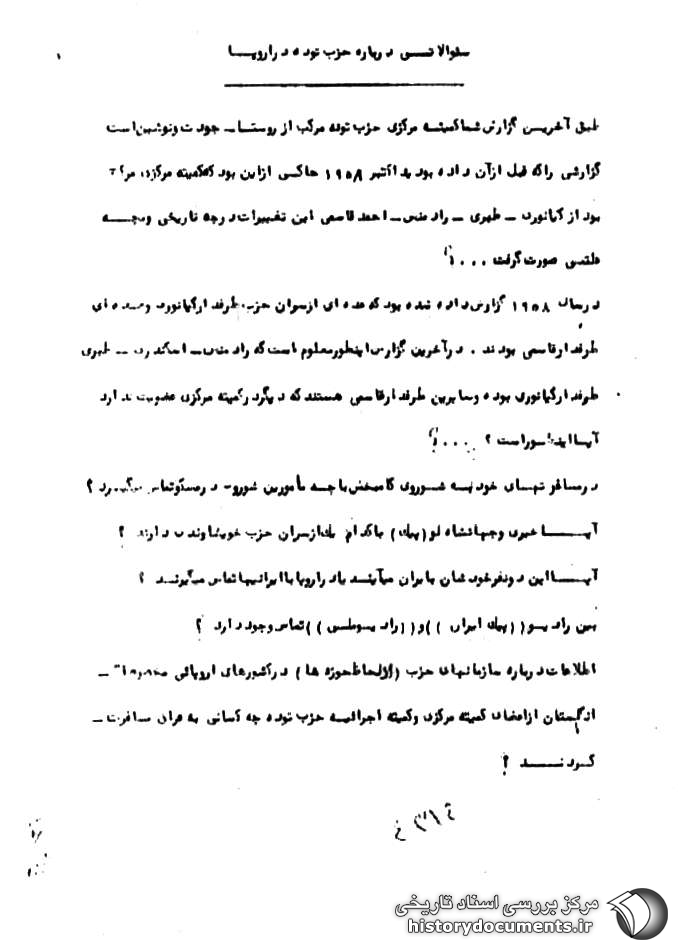 سئوالاتی درباره حزب توده در اروپا
۱
طبق آخرین گزارش شما کمیته مرکزی حزب توده مرکب از روستا ـ جودت و نوشین است
گزارشی را که قبل از آن داده بودید اکتبر ۱۹۵۸ حاکی از این بود که کمیته مرکزی مرکب
بود از کیانوری ـ طبری ـ رادمنش ـ احمد قاسمی این تغییرات در چه تاریخی و بچه
علتی صورت گرفت ...؟
در سال ۱۹۵۸ گزارش داده شده بود که عده ای از سران حزب طرفدار کیانوری و عده ای
طرفدار قاسمی بودند . در آخرین گزارش اینطور معلوم است که رادمنش ـ اسکندری ـ طبری
طرفدار کیانوری بوده و سایرین طرفدار قاسمی هستند که دیگر در کمیته مرکزی عضویت ندارد
آیا اینطور است ؟ ...؟
در مسافرتهای خود به شوروی کامبخش با چه مأمورین شوروی در مسکو تماس میگیرد ؟
آیا خیری و جهانشاه لو (پیک) با کدام یک از سران حزب خویشاوندی دارند ؟
آیا این دو نفر خودشان بایران میآیند یا در اروپا با ایرانیها تماس میگیرند ؟
بین رادیو ((پیک ایران )) و ((رادیو ملی )) تماس وجود دارد ؟
اطلاعات درباره سازمانهای حزب (از لحاظ حوزه ها ) در کشورهای اروپائی ـ
انگلستان از اعضای کمیته مرکزی و کمیته اجرائیه حزب توده چه کسانی به عراق مسافرت ـ
کردند ؟
مرکز بررسی اسناد تاریخی
historydocuments.ir